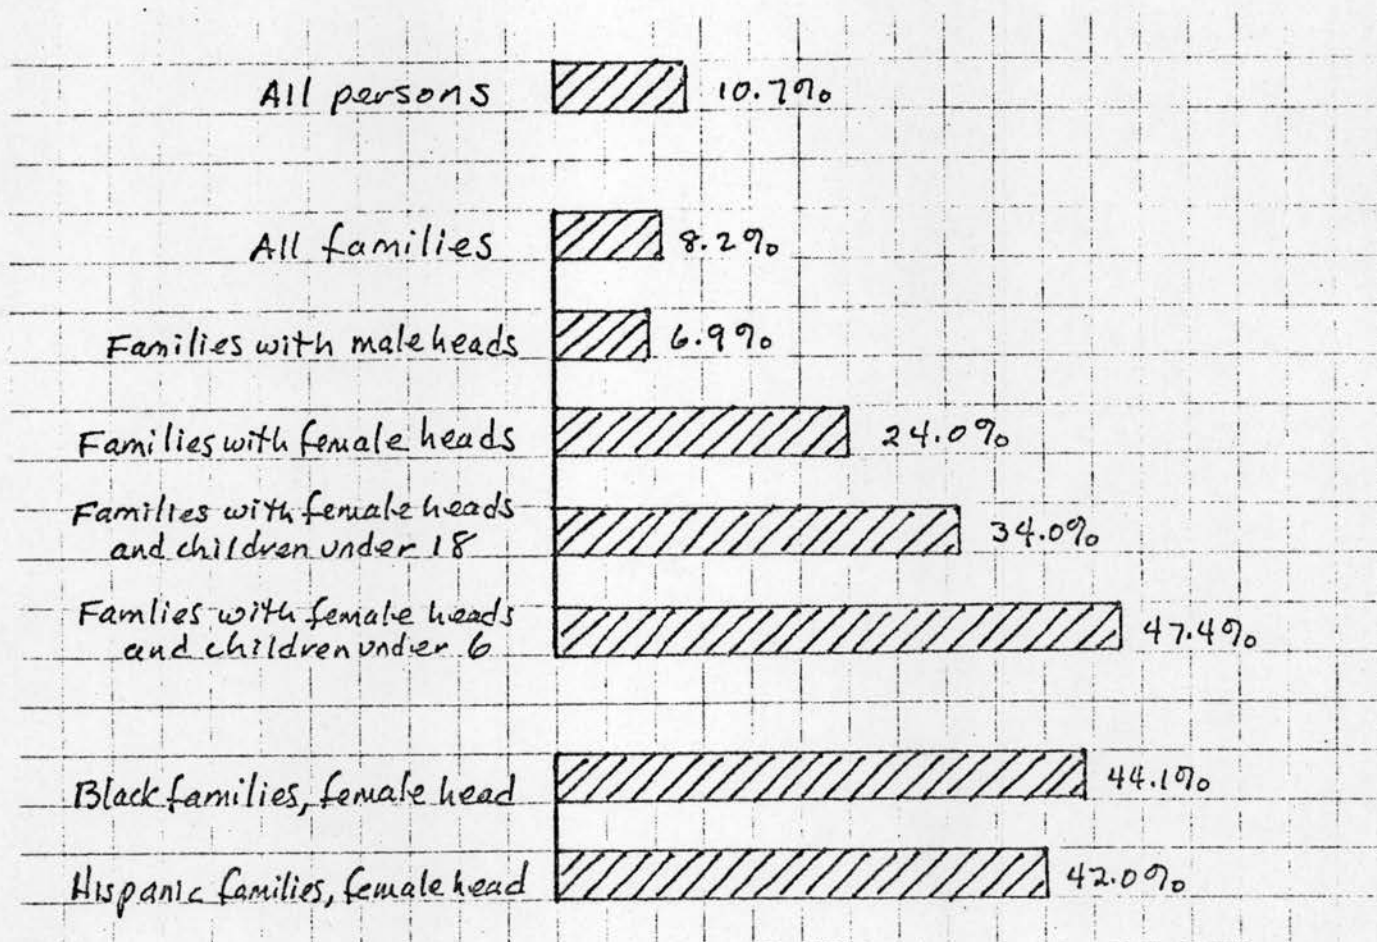 All persons 10.7%
All families 8.2%
Families with male heads 6.9%
Families with female heads 24.0%
Families with female heads
and children under 18 34.0%
Famlies with female heads
and children under 6 47.4%
Black families, female head 44.1%
Hispanic families, female head 42.0%